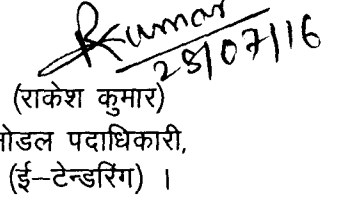 RKumar
28/07/16
(राकेश कुमार)
नोडल पदाधिकारी,
(ई–टेन्डरिंग) ।